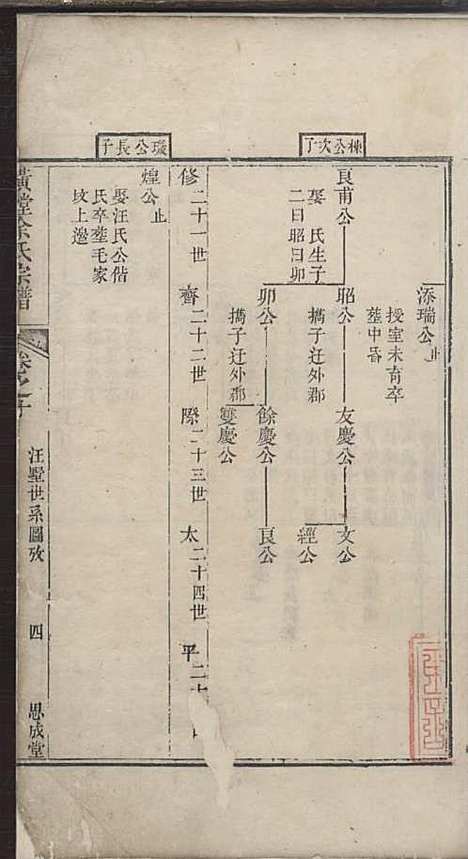 棟公次子
添瑞公止
授室未育卒
葬中昏
良甫公
娶 氏生子
二曰昭曰卯
昭公
攜子迁外郡
友慶公
文公
經公
卯公
攜子迁外郡
餘慶公
良公
雙慶公
修二十一世 齊二十二世 際二十三世 太二十四世 平二十
璇公長子
煌公止
娶汪氏公偕
氏卒葬毛家
坟上邊
黃堂余氏宗譜
汪墅世系圖攷
四
思成堂